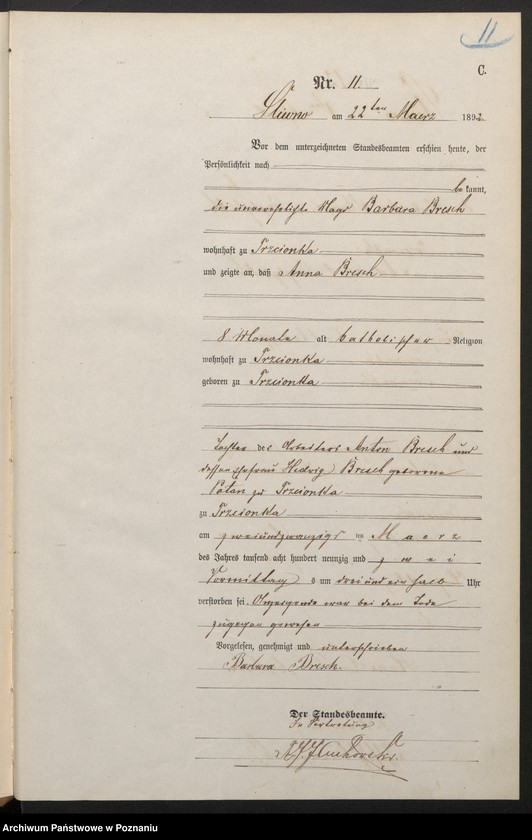 11
C.
Nr. 11.
Sliwno am 22ten Maerz 1892.
Vor dem unterzeichneten Standesbeamten erschien heute, der
Persönlichkeit nach
bekannt,
die unverehelichte Magd Barbara Bresch
wohnhaft zu Trzcionka
und zeigte an, daß Anna Bresch
8 Monate alt katholischer Religion
wohnhaft zu Trzcionka
geboren zu Trzcionka
Tochter des Arbeiters Anton Bresch und
dessen Ehefrau Hedwig Bresch geborene
zu Trzcionka
zu Trzcionka
am zweiundzwanzigs ten Maerz
des Jahres tausend acht hundert neunzig und zwei
Vormittags um drei und ein halb Uhr
verstorben sei. Anzeigende war bei dem Tode
zugegen gewesen
Vorgelesen, genehmigt und unterschrieben
Barbara Bresch.
Der Standesbeamte.
In Vertretung
Archiwum Państwowe w Poznaniu